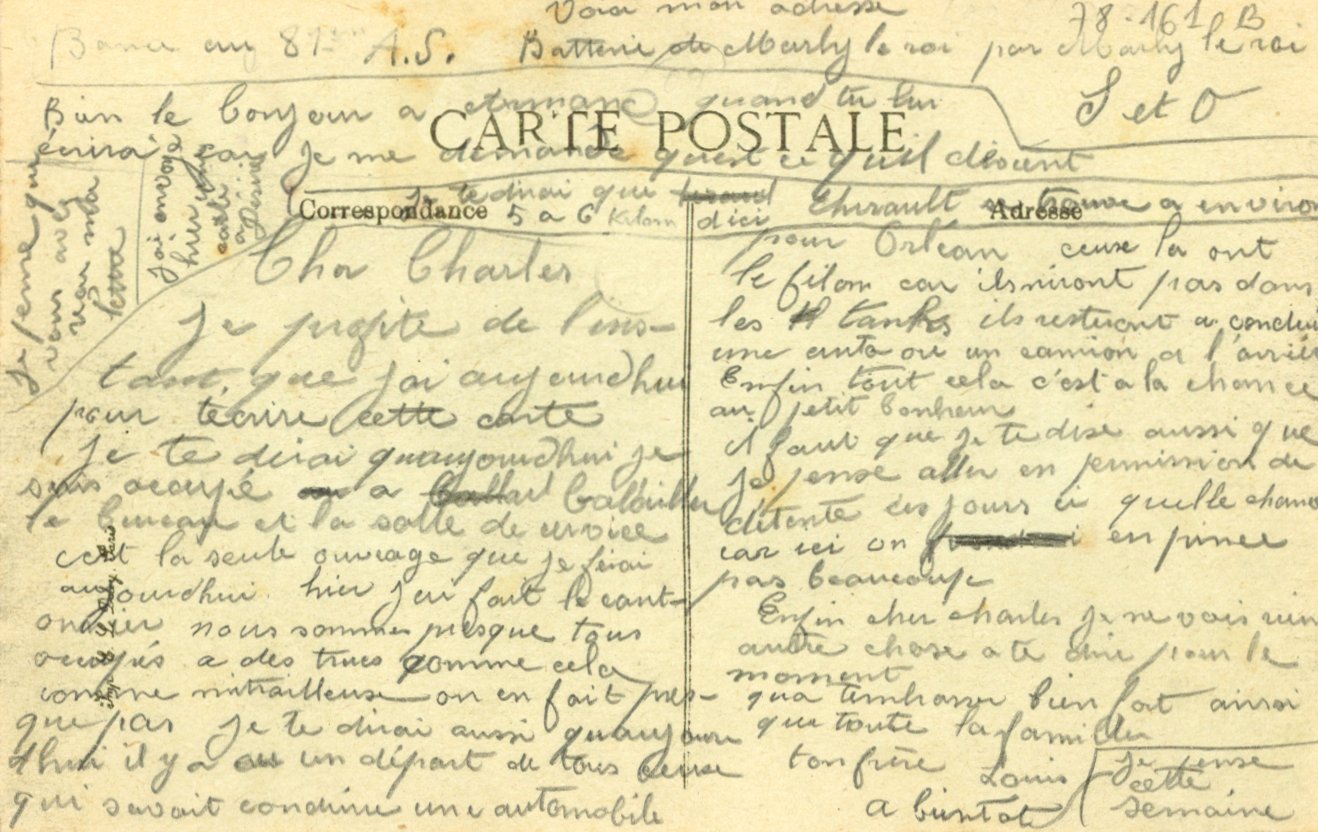 Voici mon adresse
78-161 B
81ème A.S. Batterie de Marly le roi par Marly le roi
S et O
Bien le bonjour a Armand quand tu lui
écrira car je me demande quest ce quil devient
CARTE POSTALE
Je te dirai que Thirault se trouve a environ
5 a 6 Kilom dici
Correspondance
Adresse
Je pense que
vous avez
reçu ma
lettre
J'ai envoyé
hier une
carte
a Désiré
Cher Charles
Je profite de l'ins-
tant que j'ai aujourdhui
pour técrire cette carte
Je te dirai quaujourdhui je
suis occupé a balailler
le bureau et la salle de service
cest la seule ouvrage que je ferai
aujourdhui hier j'ai fait le cant-
onnier nous sommes presque tous
occupés a des trucs comme cela
comme mitrailleuse on en fait pres-
que pas Je te dirai aussi quaujour
dhui il y a eu un départ de tous ceuse
qui savait conduire une automobile
pour Orléan ceuse la ont
le filon car ils niront pas dans
les tanks ils resteront a conduire
une auto ou un camion a l'arrière
Enfin tout cela c'est a la chance
au petit bonheur
il faut que je te dise aussi que
je pense aller en permission de
détente ces jours ci quelle chance
car ici on en pince
pas beaucoup
Enfin cher charles je ne vois rien
autre chose a te dire pour le
moment
qua tembrasser bien fort ainsi
que toute la famille
ton frère Louis
a bientot
je pense
cette
semaine